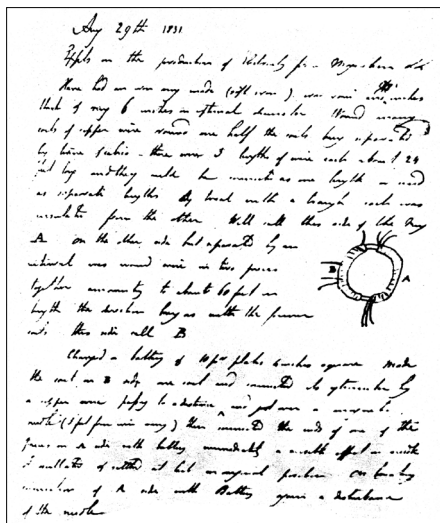 Aug 29th 1831
Expts on the production of Electricity from Magnetism etc etc
Have had an iron ring made (soft iron), iron round and 7/8 inches
thick & ring 6 inches in external diameter Wound many
coils of copper wire round one half the coils being separated
by twine & calico - there were 3 lengths of wire each about 24
feet long and they could be connected as one length or used
as separate lengths By trial with a trough each was
insulated from the other Will call this side of the ring
A on the other side but separated by an
interval was wound wire in two pieces
together amounting to about 60 feet in
length the direction being as with the former
coils this side call B
B
A
Charged a battery of 10 pr plates 4 inches square Made
the coil on B side one coil and connected its extremities by
a copper wire passing to a distance and just over a magnetic
needle (3 feet from iron ring) then connected the ends of one of the
pieces on A side with battery immediately a sensible effect on needle
It oscillated & settled at last in original position On breaking
connection of A side with Battery again a disturbance
of the needle